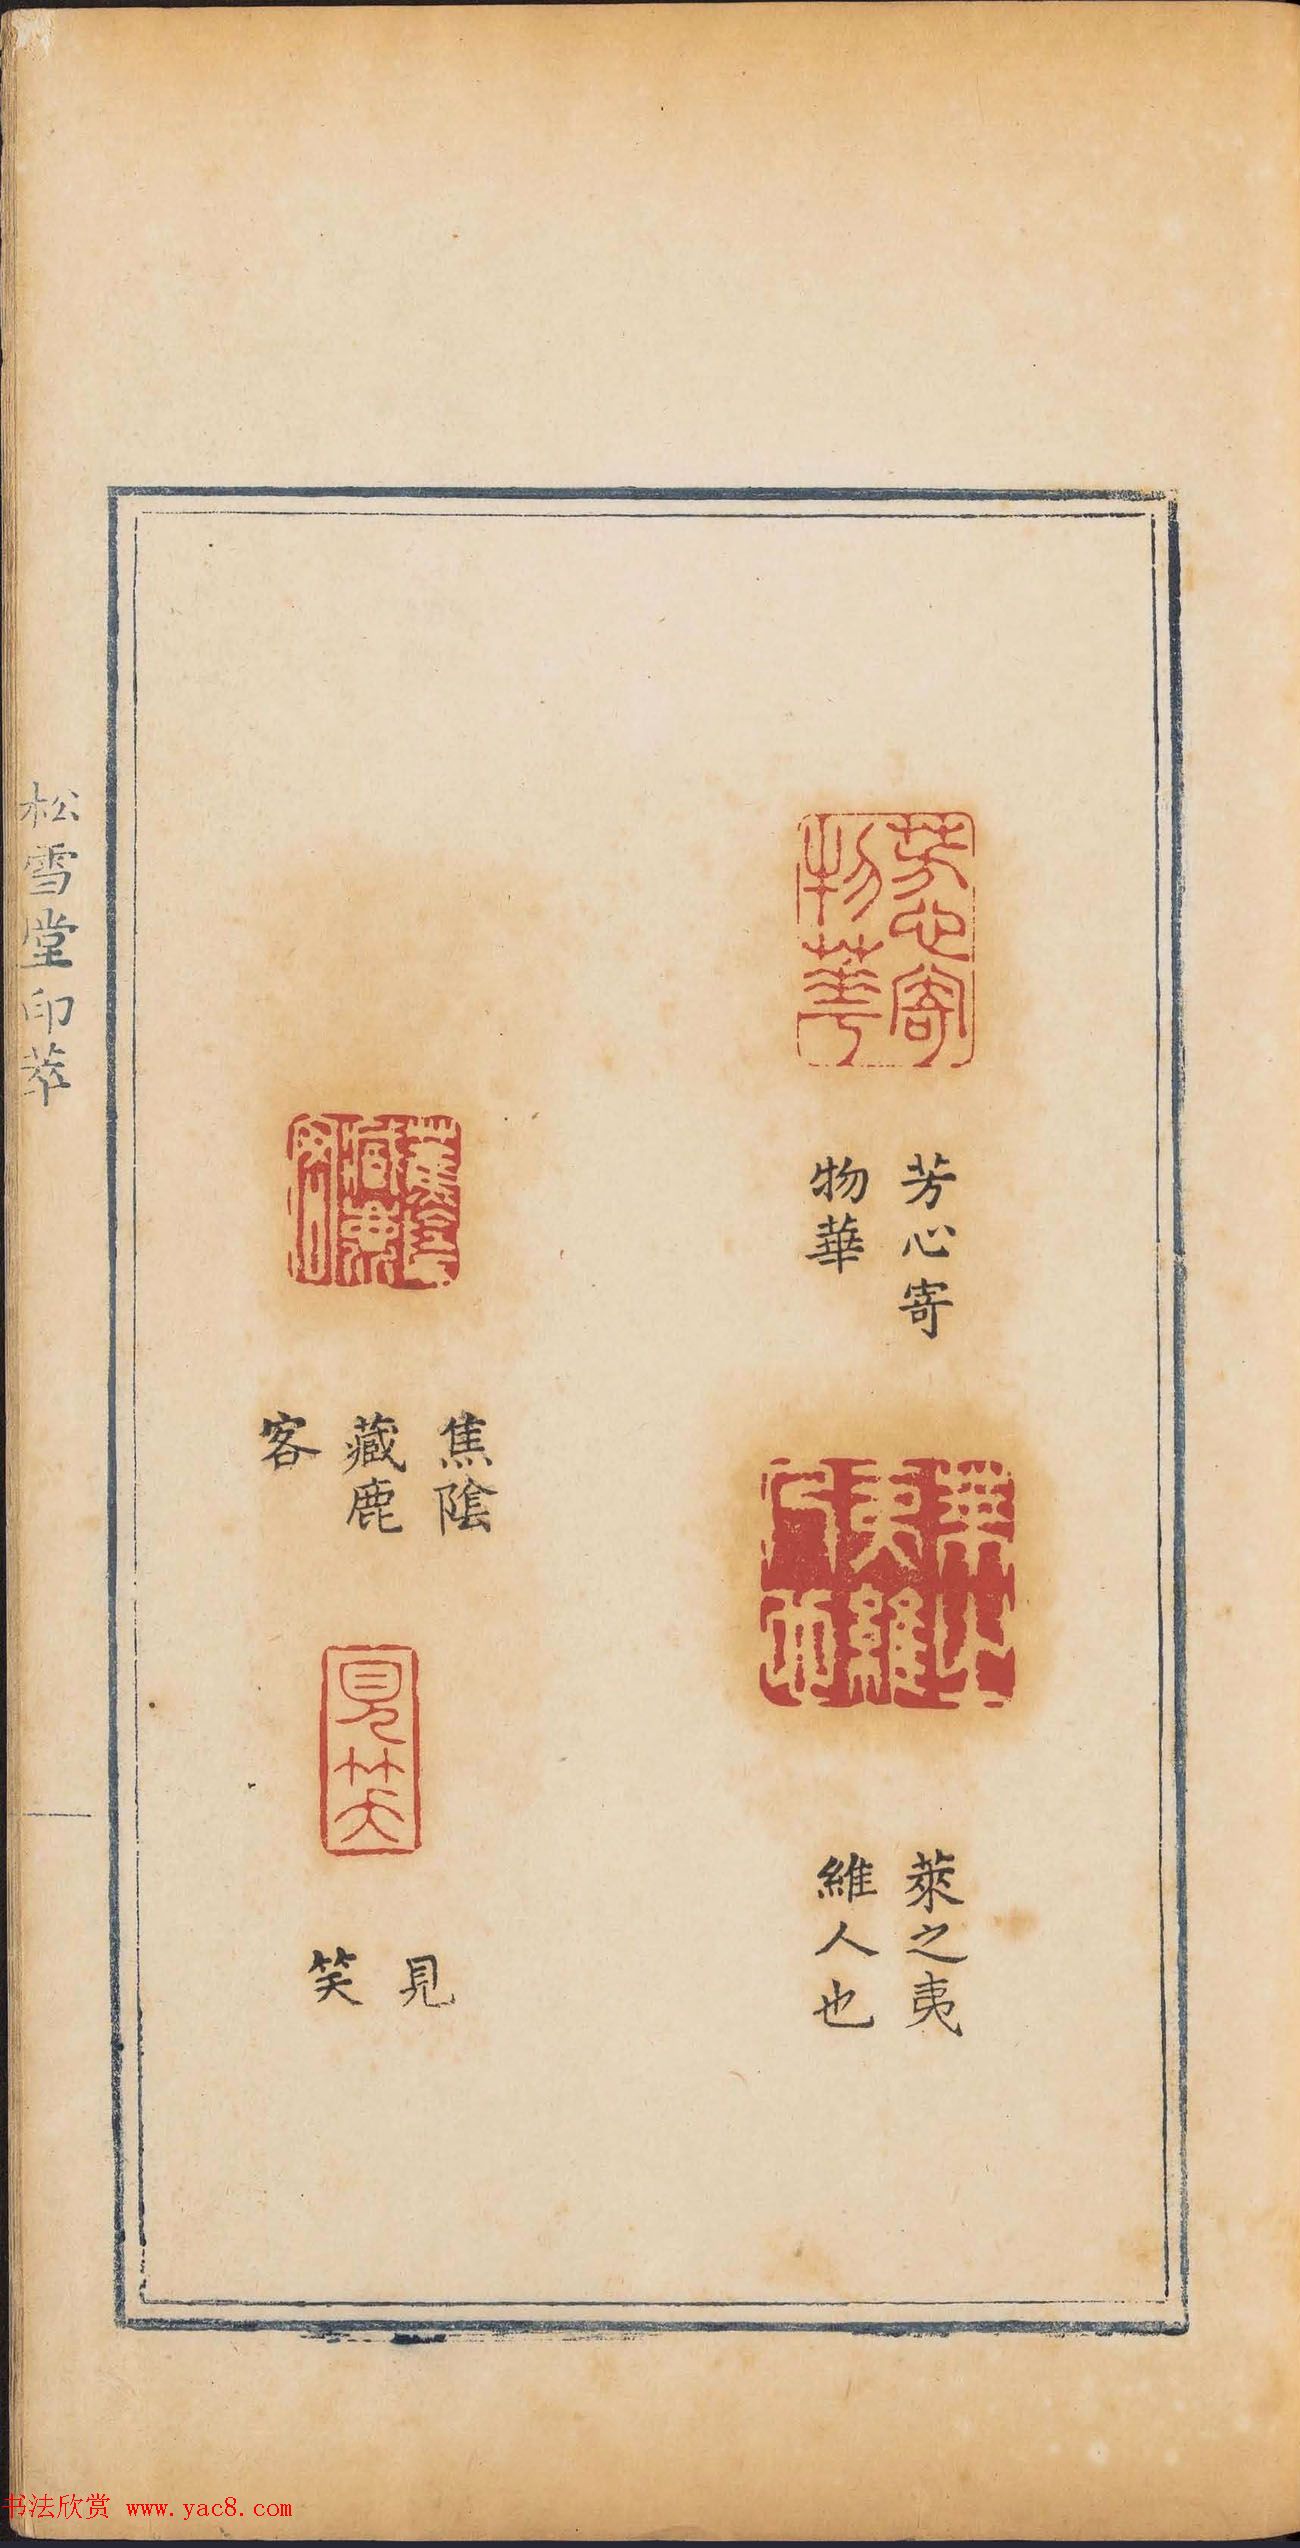 芳心寄
物華
芳心寄
物華
萊之夷
維人也
焦陰
藏鹿
客
見笑
見
笑
松雪堂印萃
书法欣赏 www.yac8.com